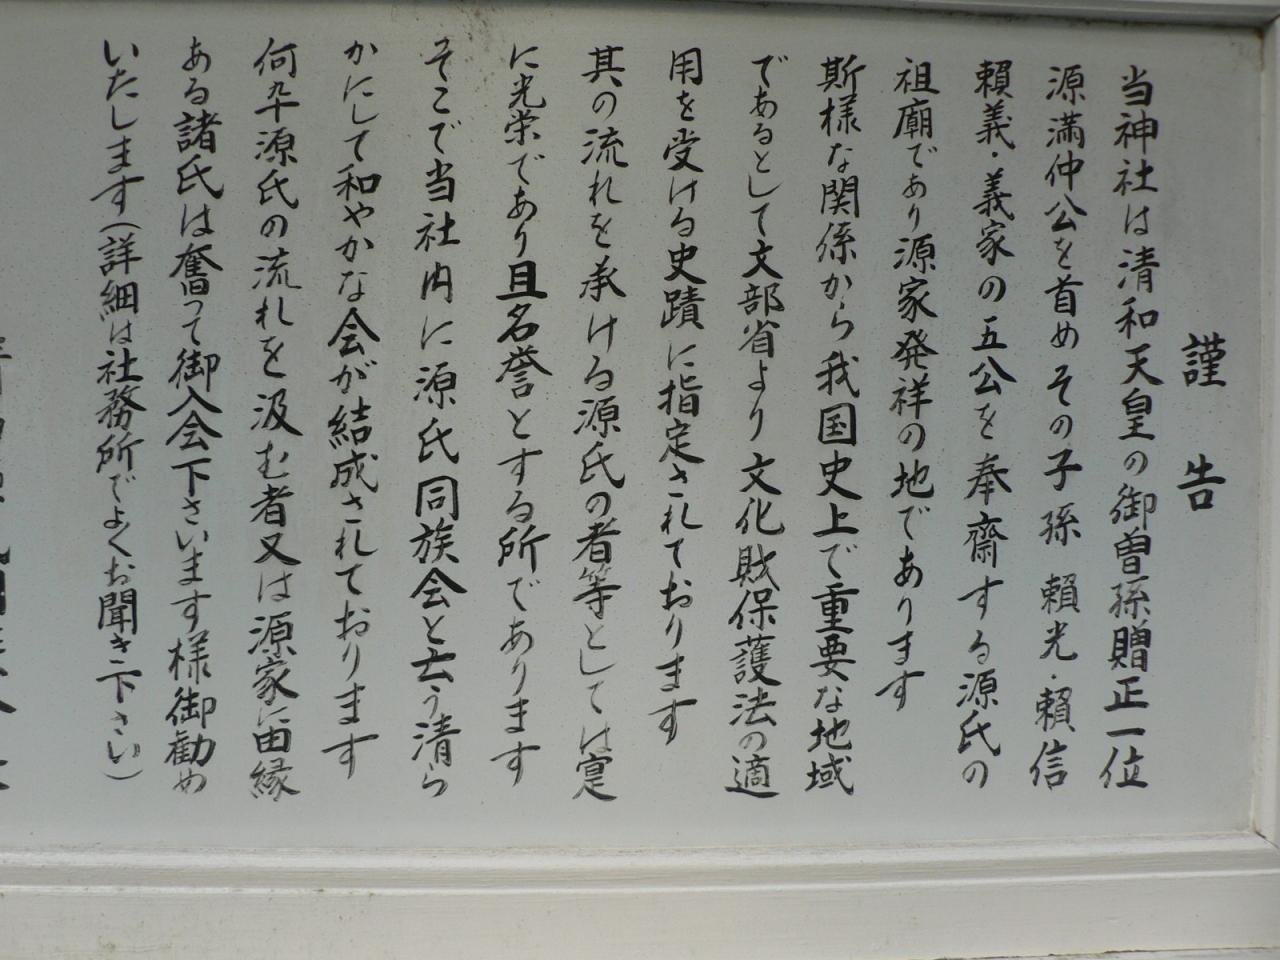 謹告
当神社は清和天皇の御曽孫贈正一位
源満仲公を首めその子孫 頼光・頼信
頼義・義家の五公を奉齋する源氏の
祖廟であり源家発祥の地であります
斯様な関係から我国史上で重要な地域
であるとして文部省より文化財保護法の適
用を受ける史蹟に指定されております
其の流れを承ける源氏の者等としては寔
に光栄であり且名誉とする所であります
そこで当社内に源氏同族会と云う清ら
かにして和やかな会が結成されております
何卒源氏の流れを汲む者又は源家に由縁
ある諸氏は奮って御入会下さいます様御勧め
いたします（詳細は社務所でよくお聞き下さい）